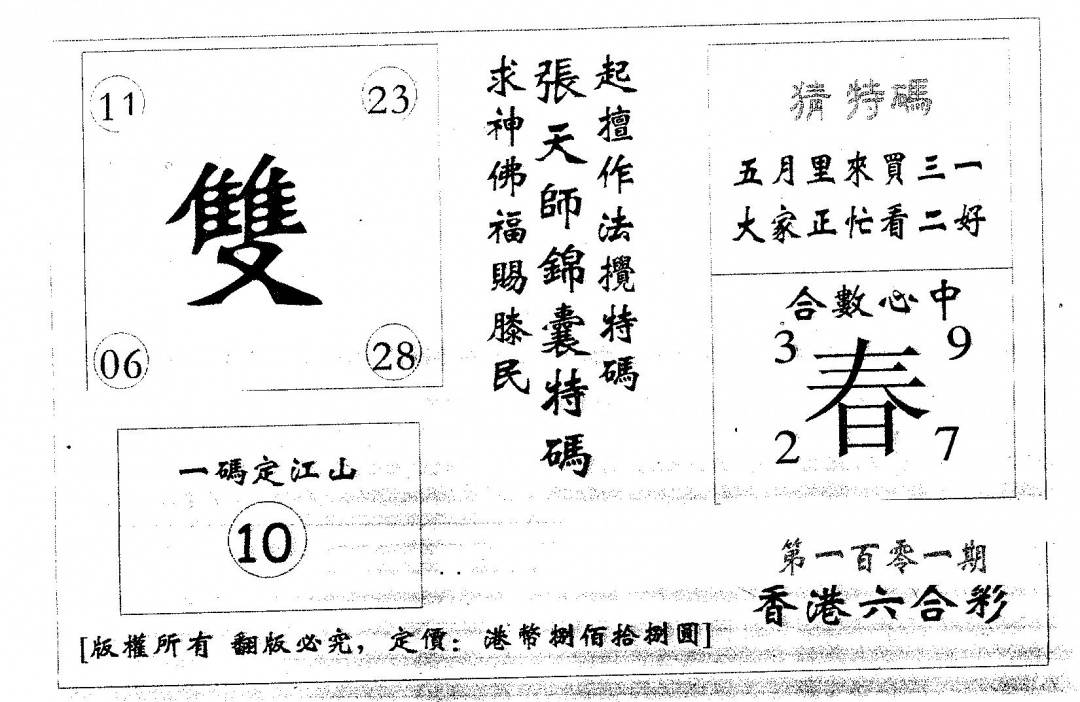 11
23
雙
06
28
一碼定江山
10
起擅作法攪特碼
張天師錦囊特碼
求神佛福賜滕民
猜特碼
五月里來買三一
大家正忙看二好
合數必中
3
9
春
2
7
第一百零一期
香港六合彩
[版權所有 翻版必究, 定價: 港幣捌佰拾捌圓]